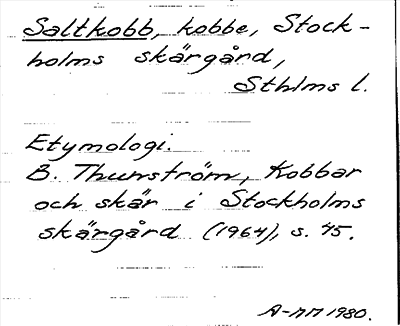 Saltkobb, kobbe, Stock-
holms skärgård,
Sthlms l.
Etymologi.
B. Thunström, Kobbar
och skär i Stockholms
skärgård (1964), s. 45.
1980.